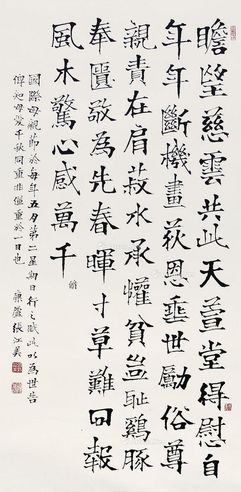 瞻望慈雲共此天萱堂得慰自
年年斷機畫荻恩垂世勵俗尊
親責在肩菽水承懽貧豈恥雞豚
奉匱敬為先春暉寸草難回報
風木驚心感萬千
國際母親節於每年五月第二星期日行之賦此以為世告
俾知母愛千秋同重非僅重於一日也
張江義